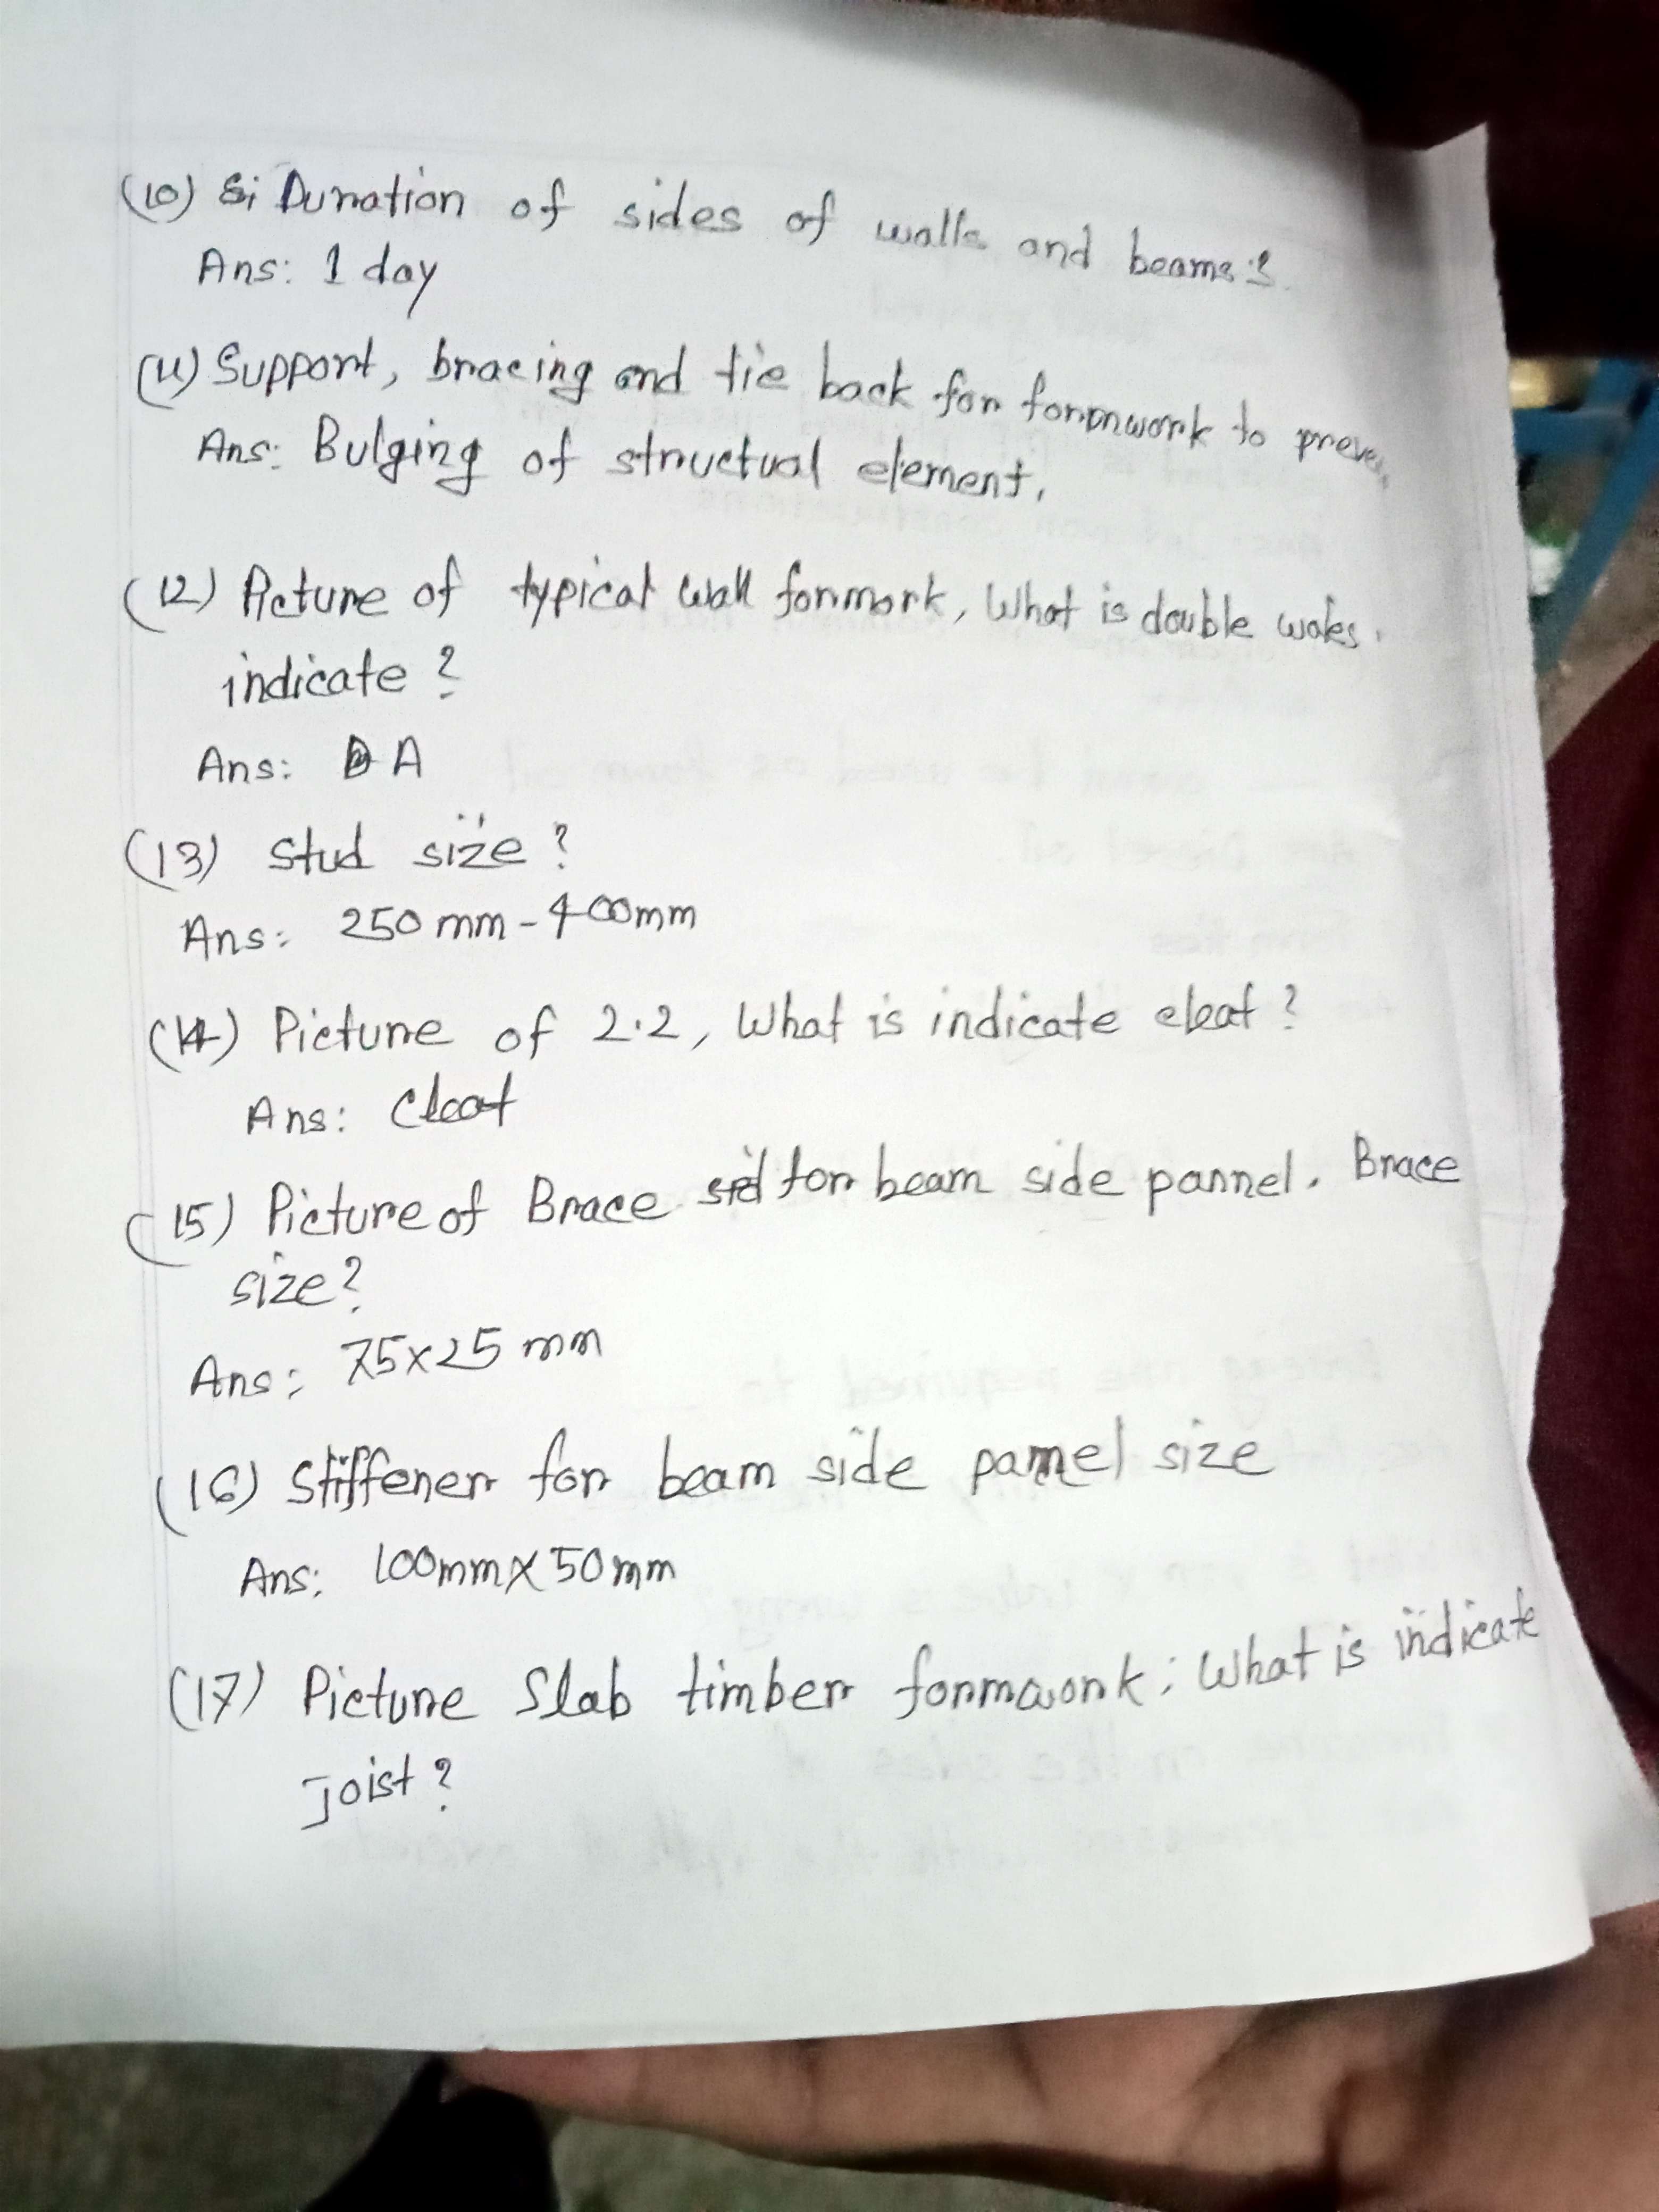 (10) Duration of sides of walls and beams?
Ans: 1 day
(11) Support, bracing and tie back for formwork to preve
Ans: Bulging of structual element.
(12) Picture of typical wall formork, What is double wales
indicate?
Ans: A
(13) Stud size?
Ans: 250 mm - 400mm
(14) Picture of 2.2, What is indicate cleat?
Ans: Cleat
(15) Picture of Brace for beam side pannel. Brace
size?
Ans: 75x25 mm
(16) Stiffener for beam side pannel size
Ans: 100mm x 50mm
(17) Picture Slab timber formwork; What is indicate
Joist?